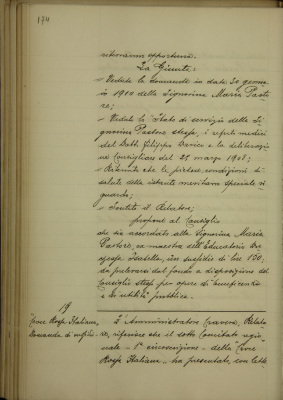 174
ritenimmo opportuni.
La Giunta:
- Vedute le domande in data 30 genna
io 1910 della Signorina Maria Pasto
re;
- Veduto lo Stato di servizio della Si
gnorina Pastore stessa, i referti medici
del Dott. Filippo e la deliberazio
ne Consigliare del 28 marzo 1901;
- Ritenuto che le condizioni di
salute della istante meritano speciale ri
guardo;
- Sentito il Relatore;
propone al Consiglio
che sia accordato alla Signorina Maria
Pastore, ex maestra dell'Educatorio
Isabella, un sussidio di lire 150,
da prelevarsi dal fondo a disposizione del
Consiglio stesso per opere di beneficenza
e di utilità pubblica.
19
Croce Rossa Italiana,
Domanda di
L'Amministratore Relato
re, riferisce che il sotto Comitato regio
nale - circoscrizione - della Croce
Rossa Italiana - ha presentato, con lette